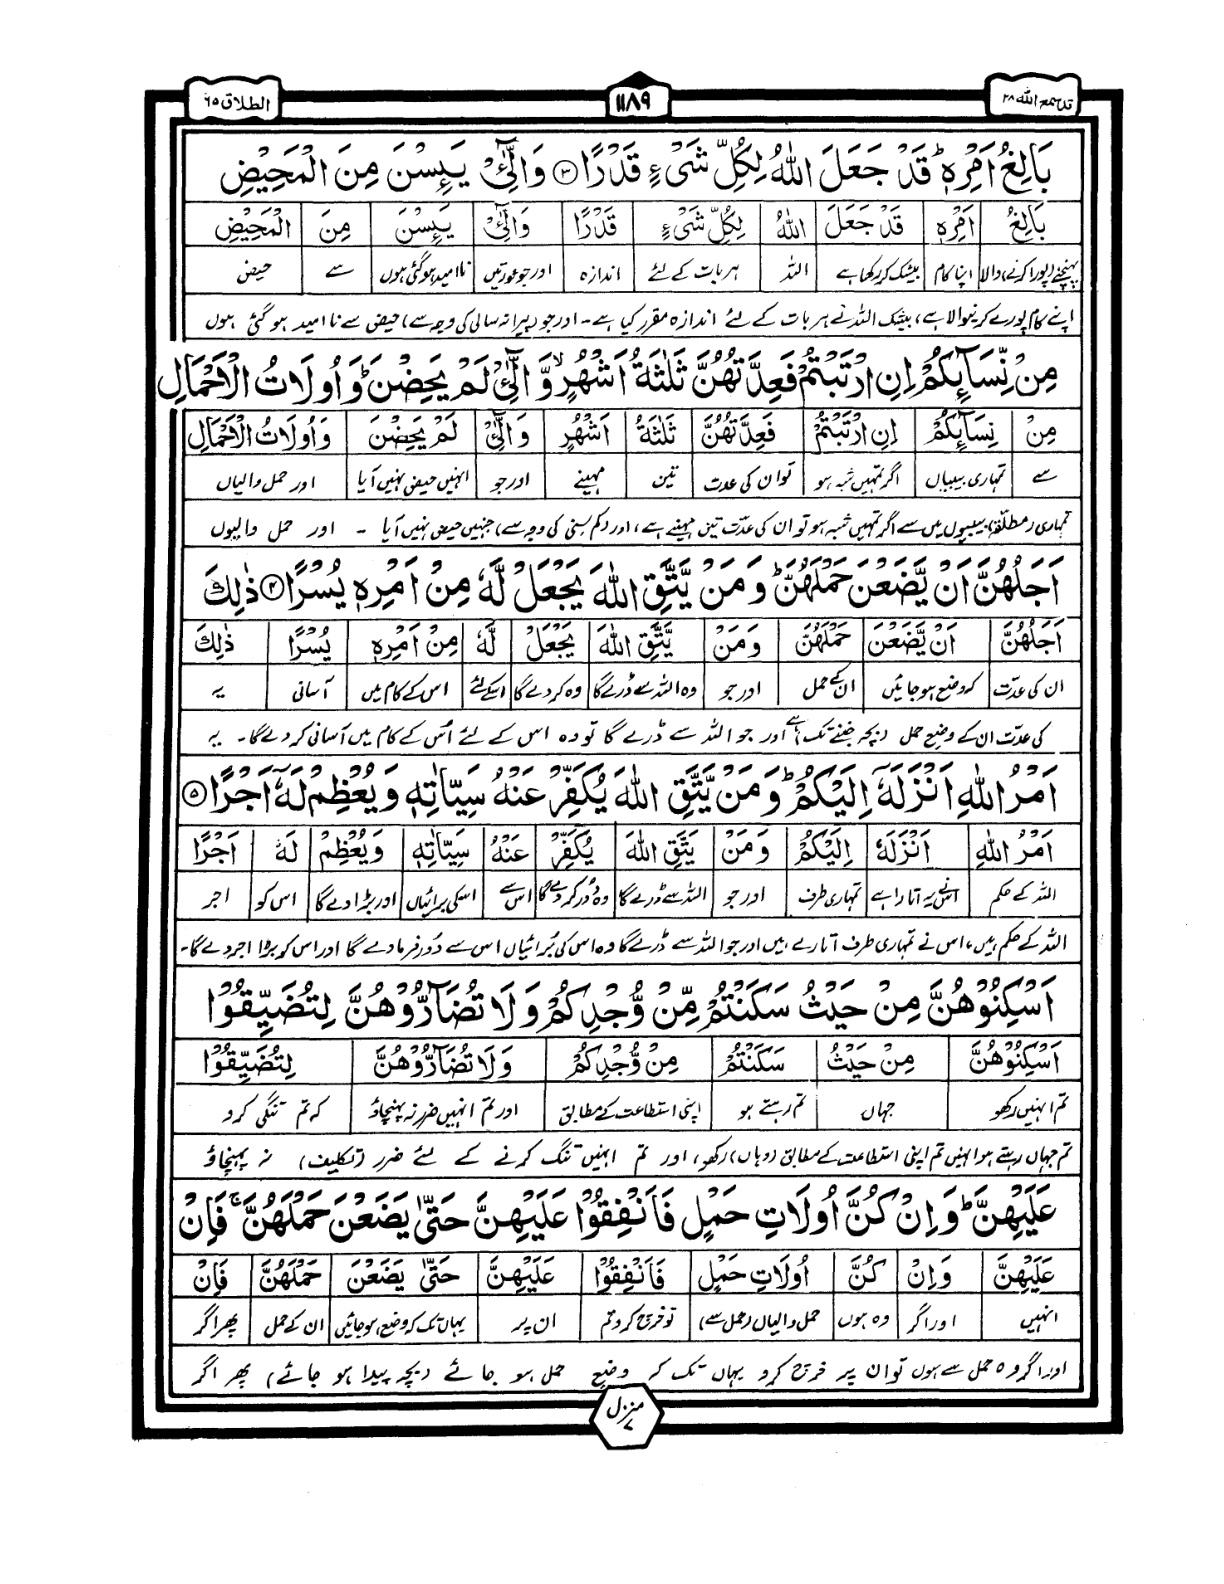 قد سمع الله ٢٨
١١٨٩
الطلاق ٦٥
بَالِغُ اَمْرِهٖ ؕ قَدْ جَعَلَ اللّٰهُ لِكُلِّ شَیْءٍ قَدْرًا ﴿۳﴾ وَالّٰٓیِٔ یَىِٕسْنَ مِنَ الْمَحِیْضِ
بَالِغُ اَمْرِهٖ قَدْ جَعَلَ اللّٰهُ لِكُلِّ شَیْءٍ قَدْرًا وَالّٰٓیِٔ یَىِٕسْنَ مِنَ الْمَحِیْضِ
پہنچنے (پورا کرنے) والا اپنا کام بیشک کر رکھا ہے اللہ ہر بات کے لئے اندازہ اور جو عورتیں نا امید ہو گئی ہوں سے حیض
اپنے کام پورے کرنیوالا ہے، بیشک اللہ نے ہر بات کے لئے اندازہ مقرر کیا ہے۔ اور جو (پیرانہ سالی کی وجہ سے) حیض سے نا امید ہو گئی ہوں
مِنْ نِّسَآىِٕكُمْ اِنِ ارْتَبْتُمْ فَعِدَّتُهُنَّ ثَلٰثَةُ اَشْهُرٍ ۙ وَّالّٰٓیِٔ لَمْ یَحِضْنَ ؕ وَاُولَاتُ الْاَحْمَالِ
مِنْ نِسَآىِٕكُمْ اِنِ ارْتَبْتُمْ فَعِدَّتُهُنَّ ثَلٰثَةُ اَشْهُرٍ وَالّٰٓیِٔ لَمْ یَحِضْنَ وَاُولَاتُ الْاَحْمَالِ
سے تمہاری بیبیاں اگر تمہیں شبہ ہو تو ان کی عدت تین مہینے اور جو انہیں حیض نہیں آیا اور حمل والیاں
تمہاری (مطلقہ) بیبیوں میں سے اگر تمہیں شبہ ہو تو ان کی عدّت تین مہینے ہے، اور (کم سنی کی وجہ سے) جنہیں حیض نہیں آیا ۔ اور حمل والیوں
اَجَلُهُنَّ اَنْ یَّضَعْنَ حَمْلَهُنَّ ؕ وَمَنْ یَّتَّقِ اللّٰهَ یَجْعَلْ لَّهٗ مِنْ اَمْرِهٖ یُسْرًا ﴿۴﴾ ذٰلِكَ
اَجَلُهُنَّ اَنْ یَّضَعْنَ حَمْلَهُنَّ وَمَنْ یَّتَّقِ اللّٰهَ یَجْعَلْ لَّهٗ مِنْ اَمْرِهٖ یُسْرًا ذٰلِكَ
ان کی عدّت کہ وضع ہو جائیں ان کے حمل اور جو وہ اللہ سے ڈرے گا وہ کر دے گا اسکے لئے اس کے کام میں آسانی یہ
کی عدّت ان کے وضع حمل (بچہ جننے تک) ہے اور جو اللہ سے ڈرے گا تو وہ اس کے لئے اُس کے کام میں آسانی کر دے گا۔ یہ
اَمْرُ اللّٰهِ اَنْزَلَهٗۤ اِلَیْكُمْ ؕ وَمَنْ یَّتَّقِ اللّٰهَ یُكَفِّرْ عَنْهُ سَیِّاٰتِهٖ وَیُعْظِمْ لَهٗۤ اَجْرًا ﴿۵﴾
اَمْرُ اللّٰهِ اَنْزَلَهٗۤ اِلَیْكُمْ وَمَنْ یَتَّقِ اللّٰهَ یُكَفِّرْ عَنْهُ سَیِّاٰتِهٖ وَیُعْظِمْ لَهٗ اَجْرًا
اللہ کے حکم اس نے یہ اتارا ہے تمہاری طرف اور جو اللہ سے ڈرے گا وہ دُور کر دے گا اس سے اسکی برائیاں اور بڑا دے گا اس کو اجر
اللہ کے حکم ہیں، اس نے تمہاری طرف اتارے ہیں اور جو اللہ سے ڈرے گا وہ اس کی بُرائیاں اس سے دُور فرما دے گا اور اس کو بڑا اجر دے گا۔
اَسْكِنُوْهُنَّ مِنْ حَیْثُ سَكَنْتُمْ مِّنْ وُّجْدِكُمْ وَلَا تُضَآرُّوْهُنَّ لِتُضَیِّقُوْا
اَسْكِنُوْهُنَّ مِنْ حَیْثُ سَكَنْتُمْ مِنْ وُّجْدِكُمْ وَلَا تُضَآرُّوْهُنَّ لِتُضَیِّقُوْا
تم انہیں رکھو جہاں تم رہتے ہو اپنی استطاعت کے مطابق اور تم انہیں ضرر نہ پہنچاؤ کہ تم تنگی کرو
تم جہاں رہتے ہو انہیں تم اپنی استطاعت کے مطابق (وہاں) رکھو، اور تم انہیں تنگ کرنے کے لئے ضرر (تکلیف) نہ پہنچاؤ
عَلَیْهِنَّ ؕ وَاِنْ كُنَّ اُولَاتِ حَمْلٍ فَاَنْفِقُوْا عَلَیْهِنَّ حَتّٰی یَضَعْنَ حَمْلَهُنَّ ۚ فَاِنْ
عَلَیْهِنَّ وَاِنْ كُنَّ اُولَاتِ حَمْلٍ فَاَنْفِقُوْا عَلَیْهِنَّ حَتّٰی یَضَعْنَ حَمْلَهُنَّ فَاِنْ
انہیں اور اگر وہ ہوں حمل والیاں (حمل سے) تو خرچ کرو تم ان پر یہاں تک کہ وضع ہو جائیں ان کے حمل پھر اگر
اور اگر وہ حمل سے ہوں تو ان پر خرچ کرو یہاں تک کہ وضع حمل ہو جائے (بچہ پیدا ہو جائے) پھر اگر
منزل ۷